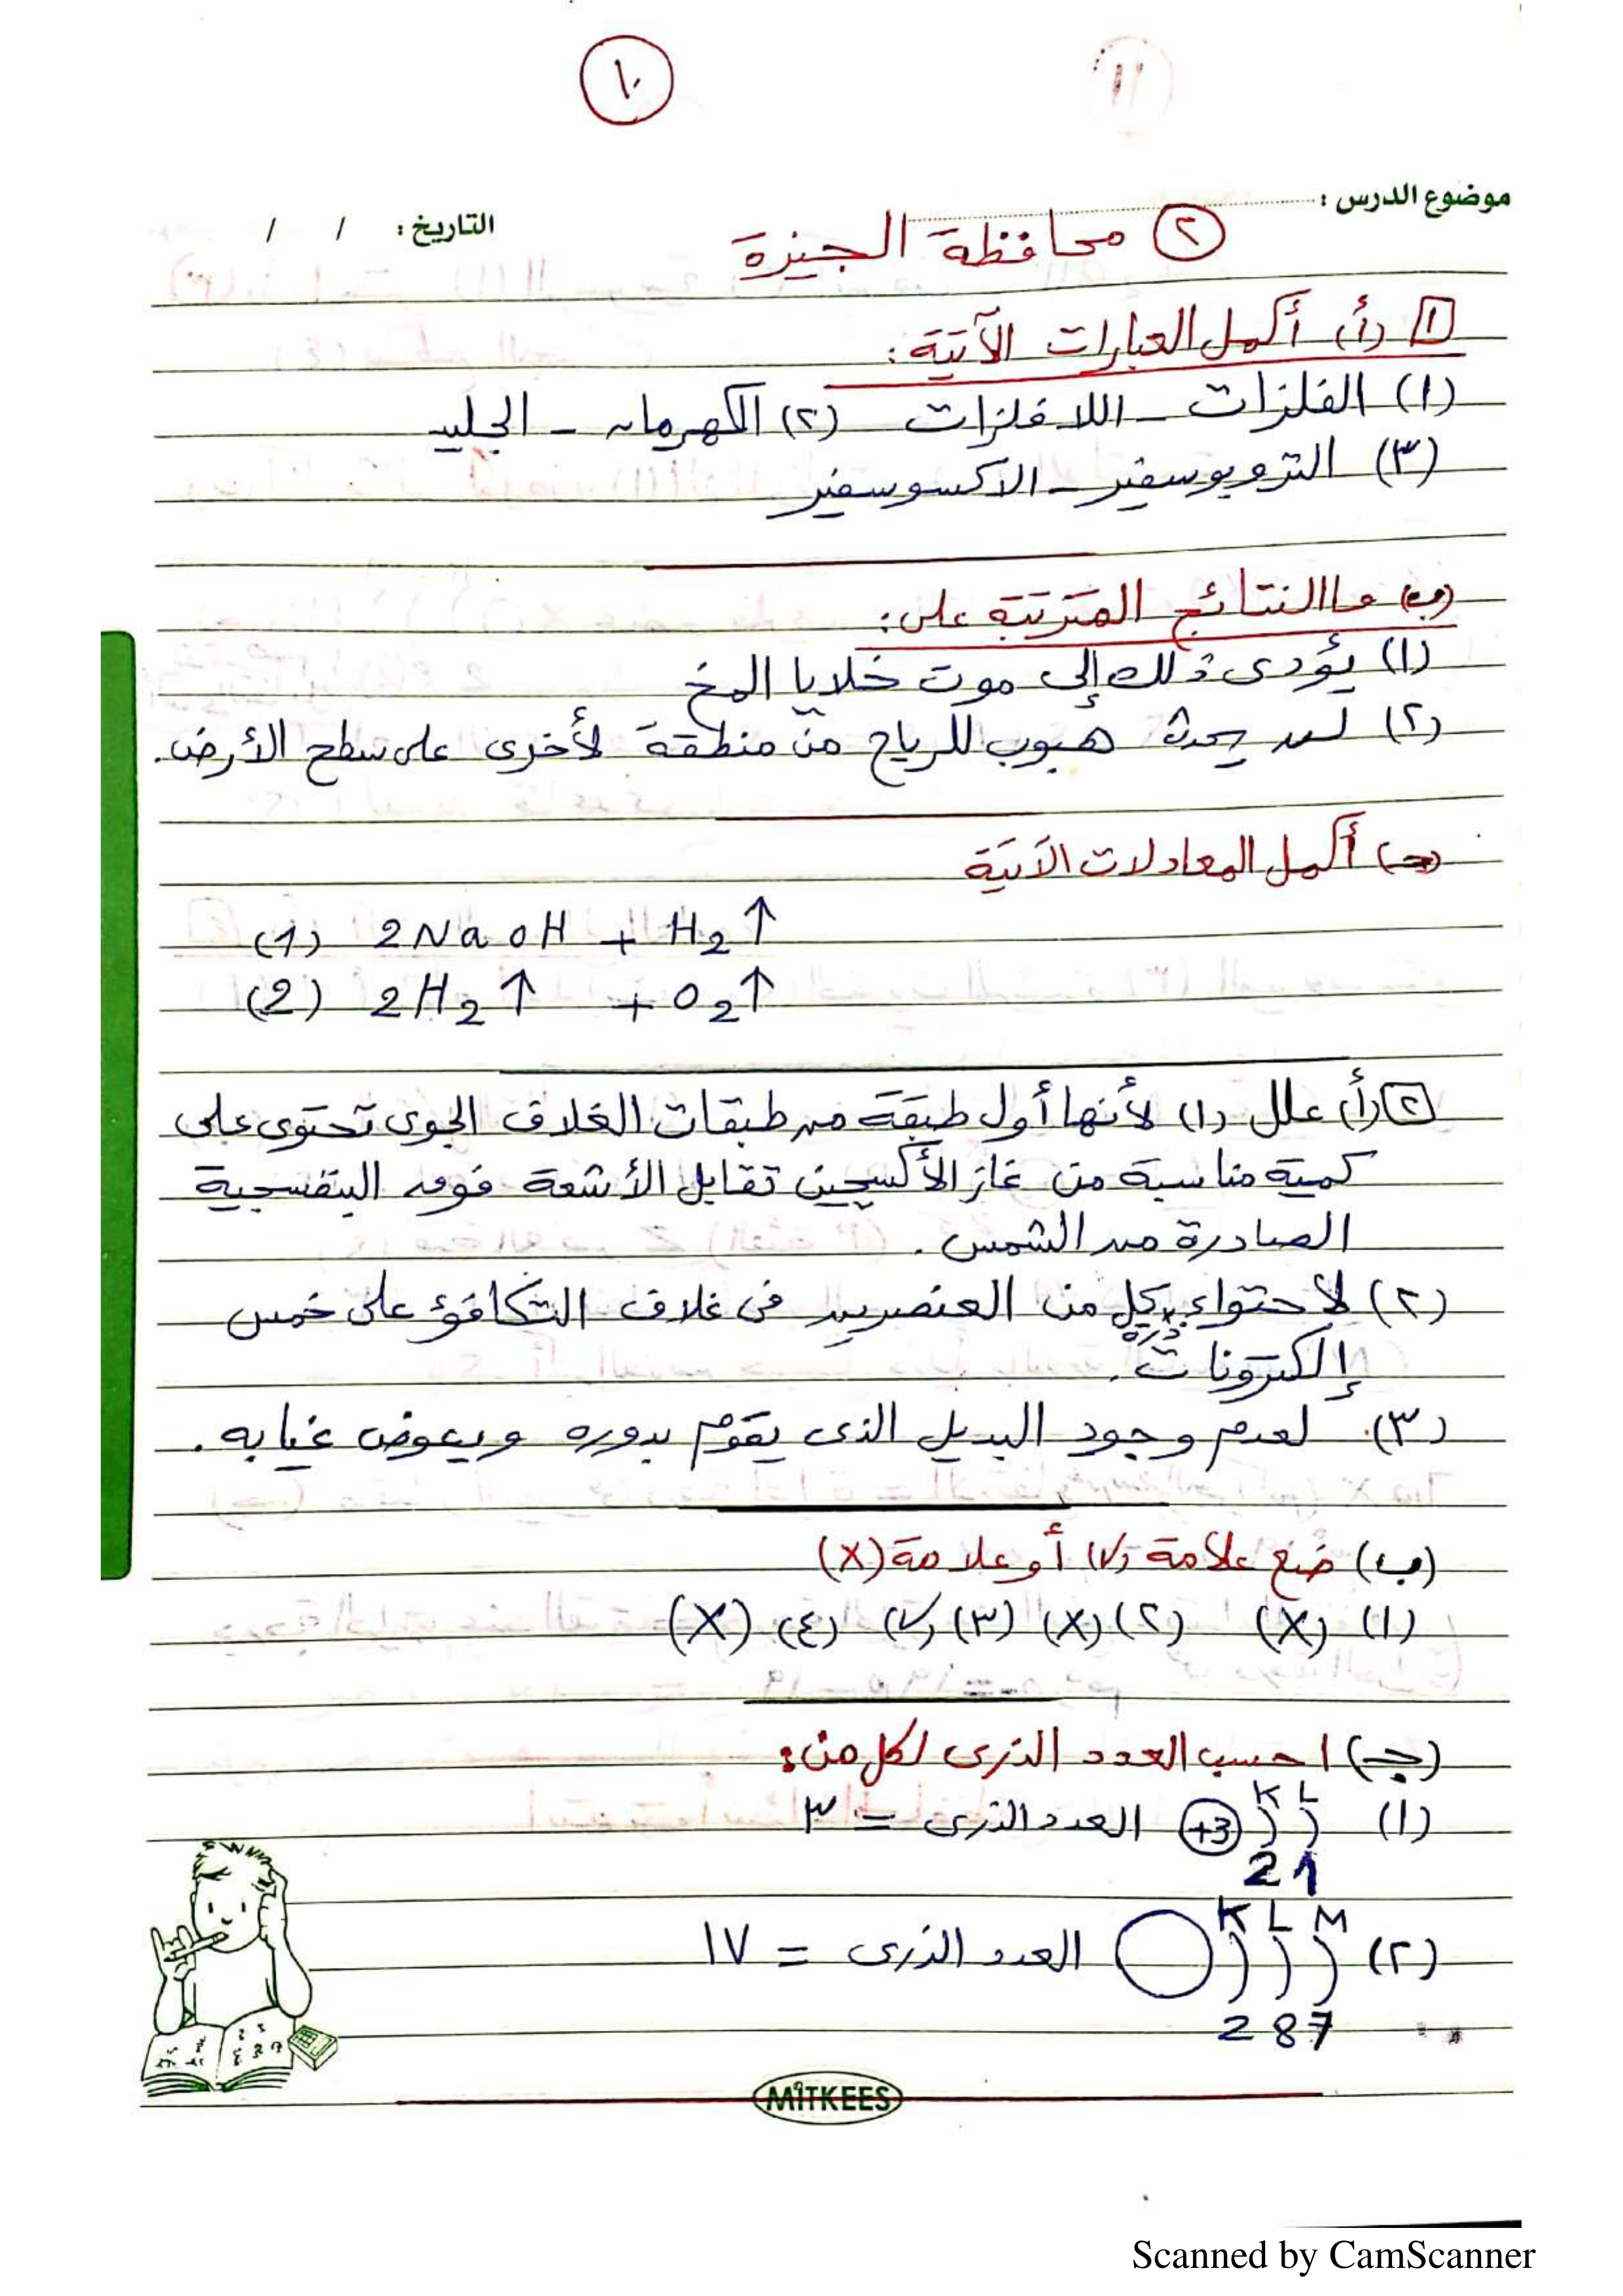 ١٠
موضوع الدرس :
التاريخ : / /
٢ محافظة الجيزة
١ (أ) أكمل العبارات الآتية :
(١) الفلزات - اللافلزات (٢) الكهرمان - الجليد
(٣) التروبوسفير - الاكسوسفير
(ب) ما النتائج المترتبة على :
(١) يؤدى ذلك إلى موت خلايا المخ
(٢) لن يحدث هبوب للرياح من منطقة لأخرى على سطح الأرض .
(جـ) أكمل المعادلات الآتية
(1) 2NaOH + H2↑
(2) 2H2↑ + O2↑
٢ (أ) علل (١) لأنها أول طبقة من طبقات الغلاف الجوى تحتوى على
كمية مناسبة من غاز الأكسجين تقابل الأشعة فوق البنفسجية
الصادرة من الشمس .
(٢) لاحتواء ذرة كل من العنصرين فى غلاف التكافؤ على خمس
إلكترونات .
(٣) لعدم وجود البديل الذى يقوم بدوره ويعوض غيابه .
(ب) ضع علامة (√) أو علامة (X)
(١) (X) (٢) (X) (٣) (√) (٤) (X)
(جـ) احسب العدد الذرى لكل من :
K L
(١) +3 العدد الذرى = ٣
2 1
K L M
(٢) العدد الذرى = ١٧
2 8 7
MITKEES
Scanned by CamScanner